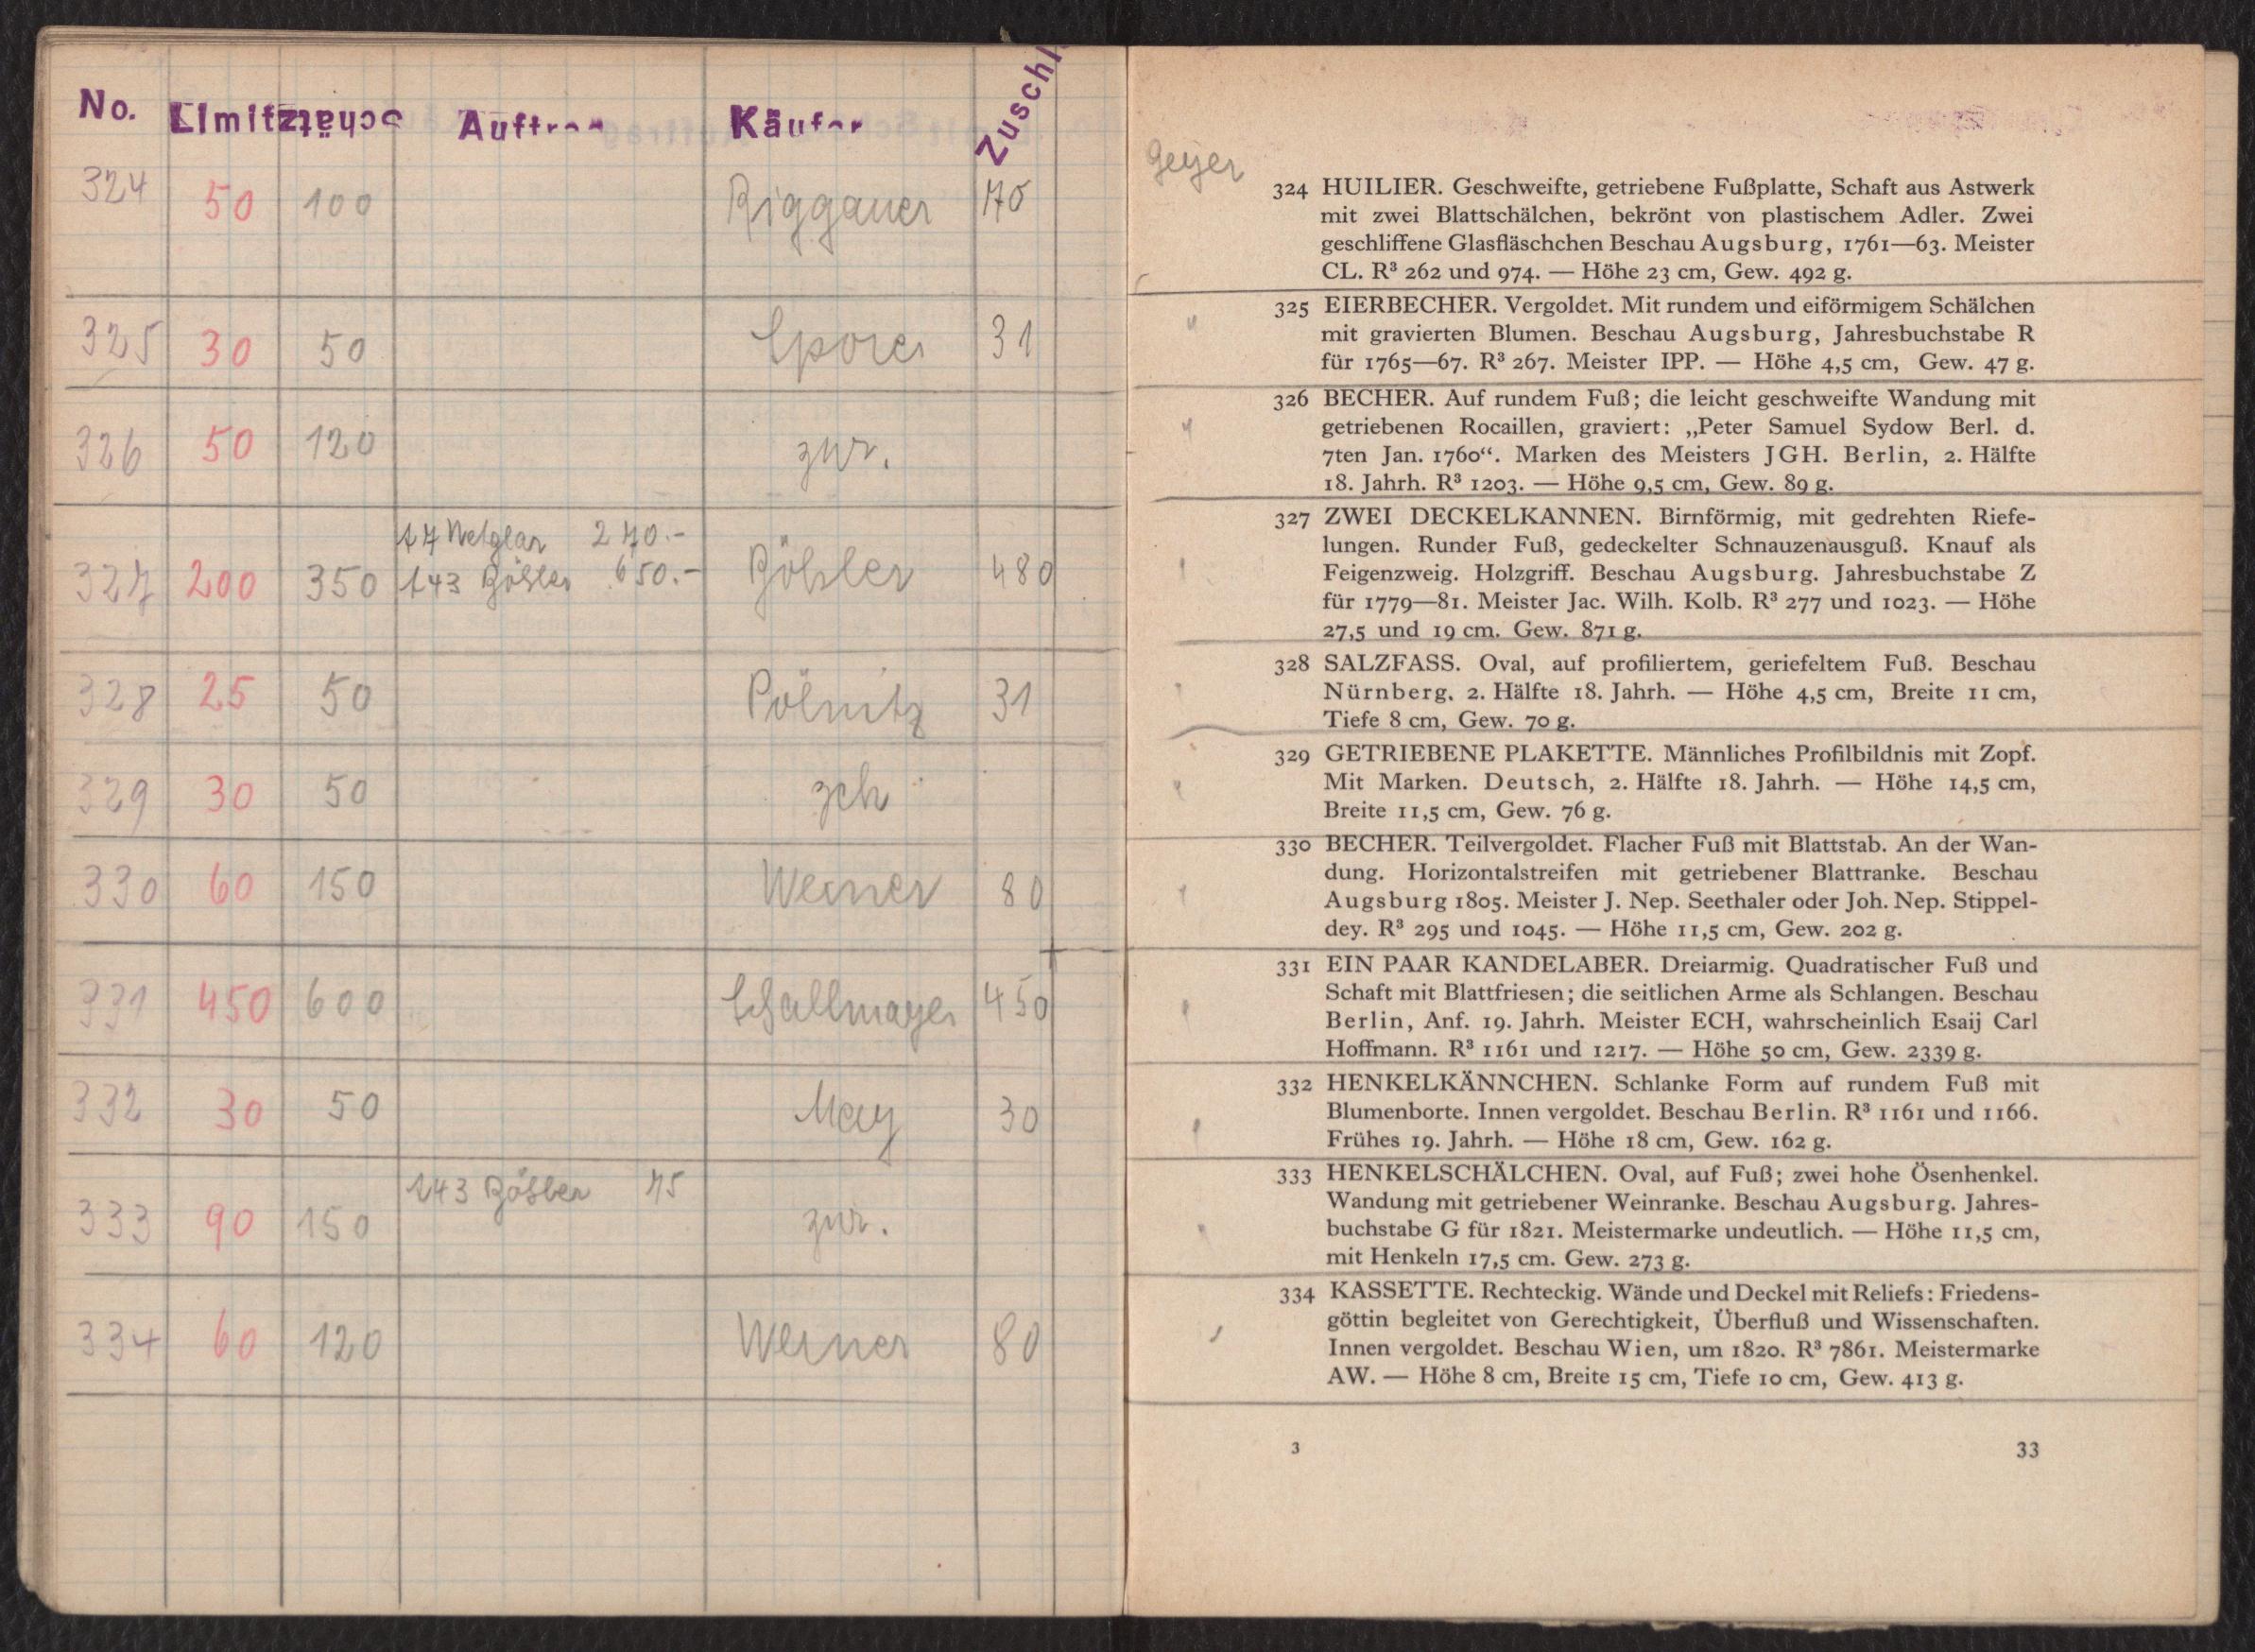 No. Limit Schätz Auftrag Käufer Zuschl
324 50 100 Riggauer 170
325 30 50 Sporer 31
326 50 120 zur.
147 Netzlar 270.-
327 200 350 143 Böhler 650.- Böhler 480
328 25 50 Pölnitz 31
329 30 50 zch
330 60 150 Werner 80
331 450 600 Schallmayer 450
332 30 50 May 30
143 Böhler 75
333 90 150 zur.
334 60 120 Werner 80
Geyer
324 HUILIER. Geschweifte, getriebene Fußplatte, Schaft aus Astwerk
mit zwei Blattschälchen, bekrönt von plastischem Adler. Zwei
geschliffene Glasfläschchen Beschau Augsburg, 1761—63. Meister
CL. R³ 262 und 974. — Höhe 23 cm, Gew. 492 g.
325 EIERBECHER. Vergoldet. Mit rundem und eiförmigem Schälchen
mit gravierten Blumen. Beschau Augsburg, Jahresbuchstabe R
für 1765—67. R³ 267. Meister IPP. — Höhe 4,5 cm, Gew. 47 g.
326 BECHER. Auf rundem Fuß; die leicht geschweifte Wandung mit
getriebenen Rocaillen, graviert: „Peter Samuel Sydow Berl. d.
7ten Jan. 1760“. Marken des Meisters JGH. Berlin, 2. Hälfte
18. Jahrh. R³ 1203. — Höhe 9,5 cm, Gew. 89 g.
327 ZWEI DECKELKANNEN. Birnförmig, mit gedrehten Riefe-
lungen. Runder Fuß, gedeckelter Schnauzenausguß. Knauf als
Feigenzweig. Holzgriff. Beschau Augsburg. Jahresbuchstabe Z
für 1779—81. Meister Jac. Wilh. Kolb. R³ 277 und 1023. — Höhe
27,5 und 19 cm. Gew. 871 g.
328 SALZFASS. Oval, auf profiliertem, geriefeltem Fuß. Beschau
Nürnberg. 2. Hälfte 18. Jahrh. — Höhe 4,5 cm, Breite 11 cm,
Tiefe 8 cm, Gew. 70 g.
329 GETRIEBENE PLAKETTE. Männliches Profilbildnis mit Zopf.
Mit Marken. Deutsch, 2. Hälfte 18. Jahrh. — Höhe 14,5 cm,
Breite 11,5 cm, Gew. 76 g.
330 BECHER. Teilvergoldet. Flacher Fuß mit Blattstab. An der Wan-
dung. Horizontalstreifen mit getriebener Blattranke. Beschau
Augsburg 1805. Meister J. Nep. Seethaler oder Joh. Nep. Stippel-
dey. R³ 295 und 1045. — Höhe 11,5 cm, Gew. 202 g.
331 EIN PAAR KANDELABER. Dreiarmig. Quadratischer Fuß und
Schaft mit Blattfriesen; die seitlichen Arme als Schlangen. Beschau
Berlin, Anf. 19. Jahrh. Meister ECH, wahrscheinlich Esaij Carl
Hoffmann. R³ 1161 und 1217. — Höhe 50 cm, Gew. 2339 g.
332 HENKELKÄNNCHEN. Schlanke Form auf rundem Fuß mit
Blumenborte. Innen vergoldet. Beschau Berlin. R³ 1161 und 1166.
Frühes 19. Jahrh. — Höhe 18 cm, Gew. 162 g.
333 HENKELSCHÄLCHEN. Oval, auf Fuß; zwei hohe Ösenhenkel.
Wandung mit getriebener Weinranke. Beschau Augsburg. Jahres-
buchstabe G für 1821. Meistermarke undeutlich. — Höhe 11,5 cm,
mit Henkeln 17,5 cm. Gew. 273 g.
334 KASSETTE. Rechteckig. Wände und Deckel mit Reliefs: Friedens-
göttin begleitet von Gerechtigkeit, Überfluß und Wissenschaften.
Innen vergoldet. Beschau Wien, um 1820. R³ 7861. Meistermarke
AW. — Höhe 8 cm, Breite 15 cm, Tiefe 10 cm, Gew. 413 g.
3 33